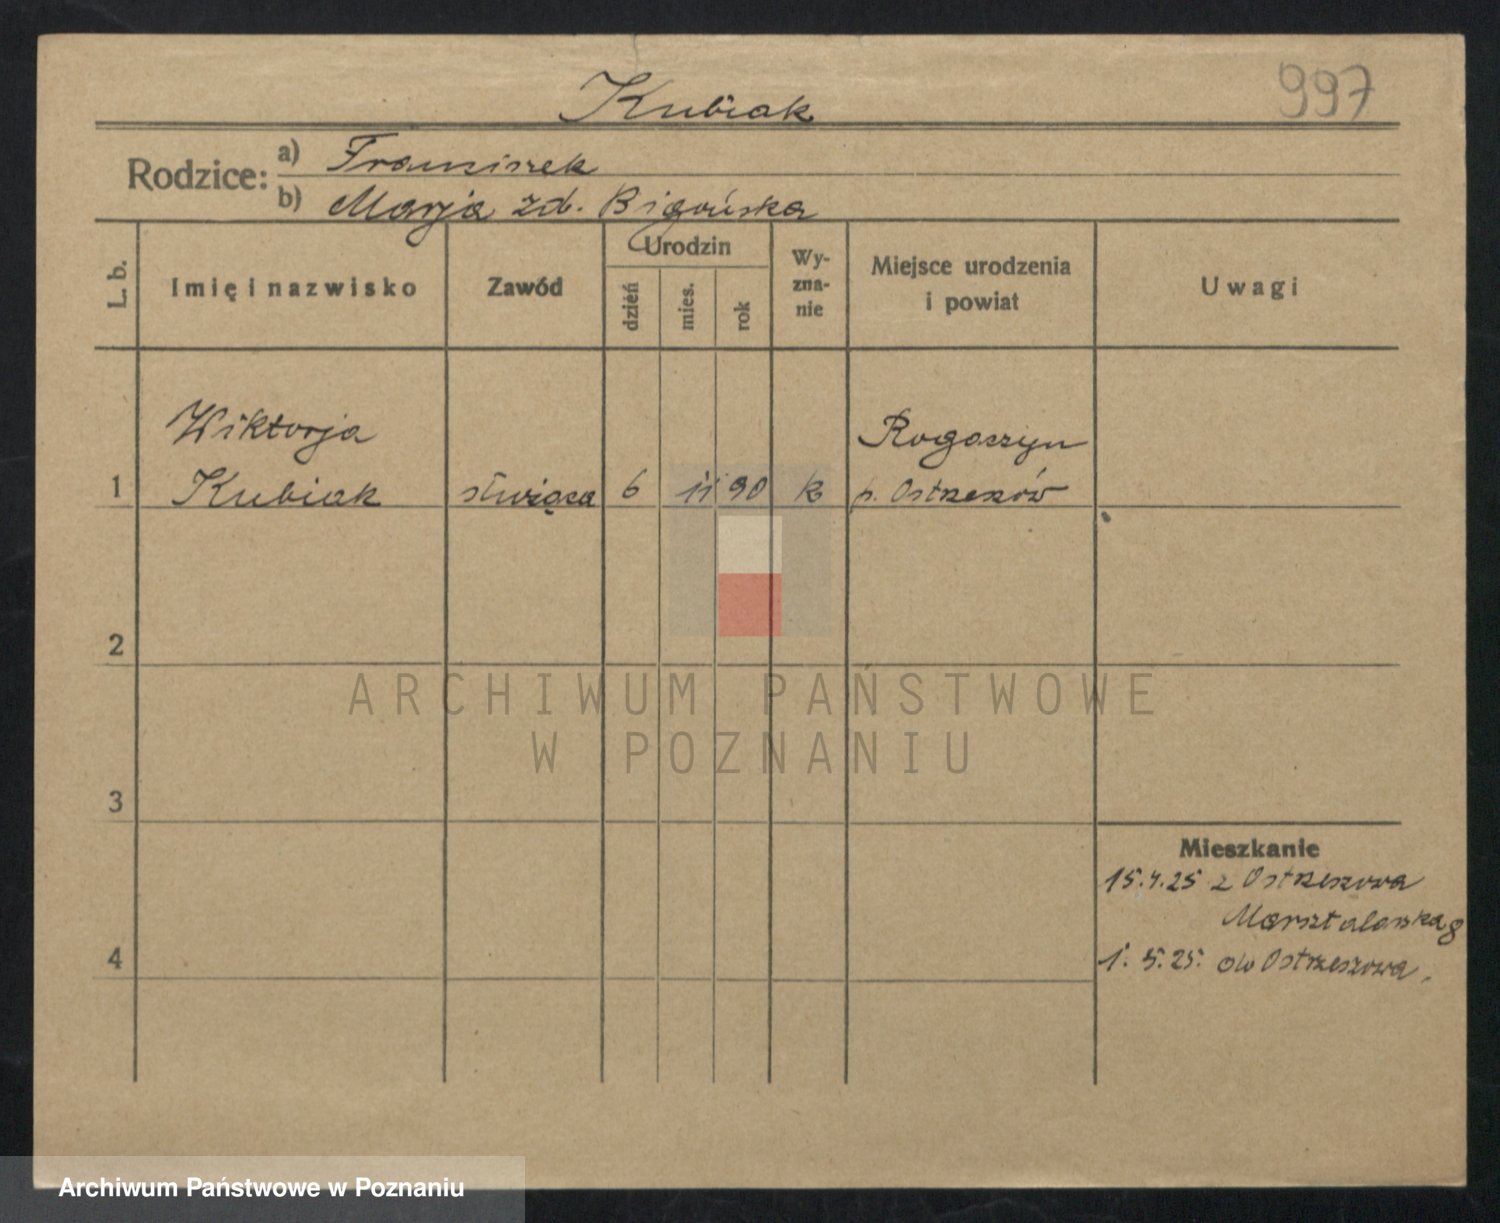 Kubiak
997
Rodzice:
a) Franciszek
b) Marja zd. Bigońska
L. b.
Imię i nazwisko
Zawód
Urodzin
dzień
mies.
rok
Wy-
zna-
nie
Miejsce urodzenia
i powiat
Uwagi
Wiktorja
Rogaszyn
1 Kubiak służąca 6 11 90 k p. Ostrzeszów
2
ARCHIWUM PAŃSTWOWE
W POZNANIU
3
Mieszkanie
15.4.25 z Ostrzeszowa
Marsztalarska 8
4
1. 5. 25. do Ostrzeszowa.
Archiwum Państwowe w Poznaniu